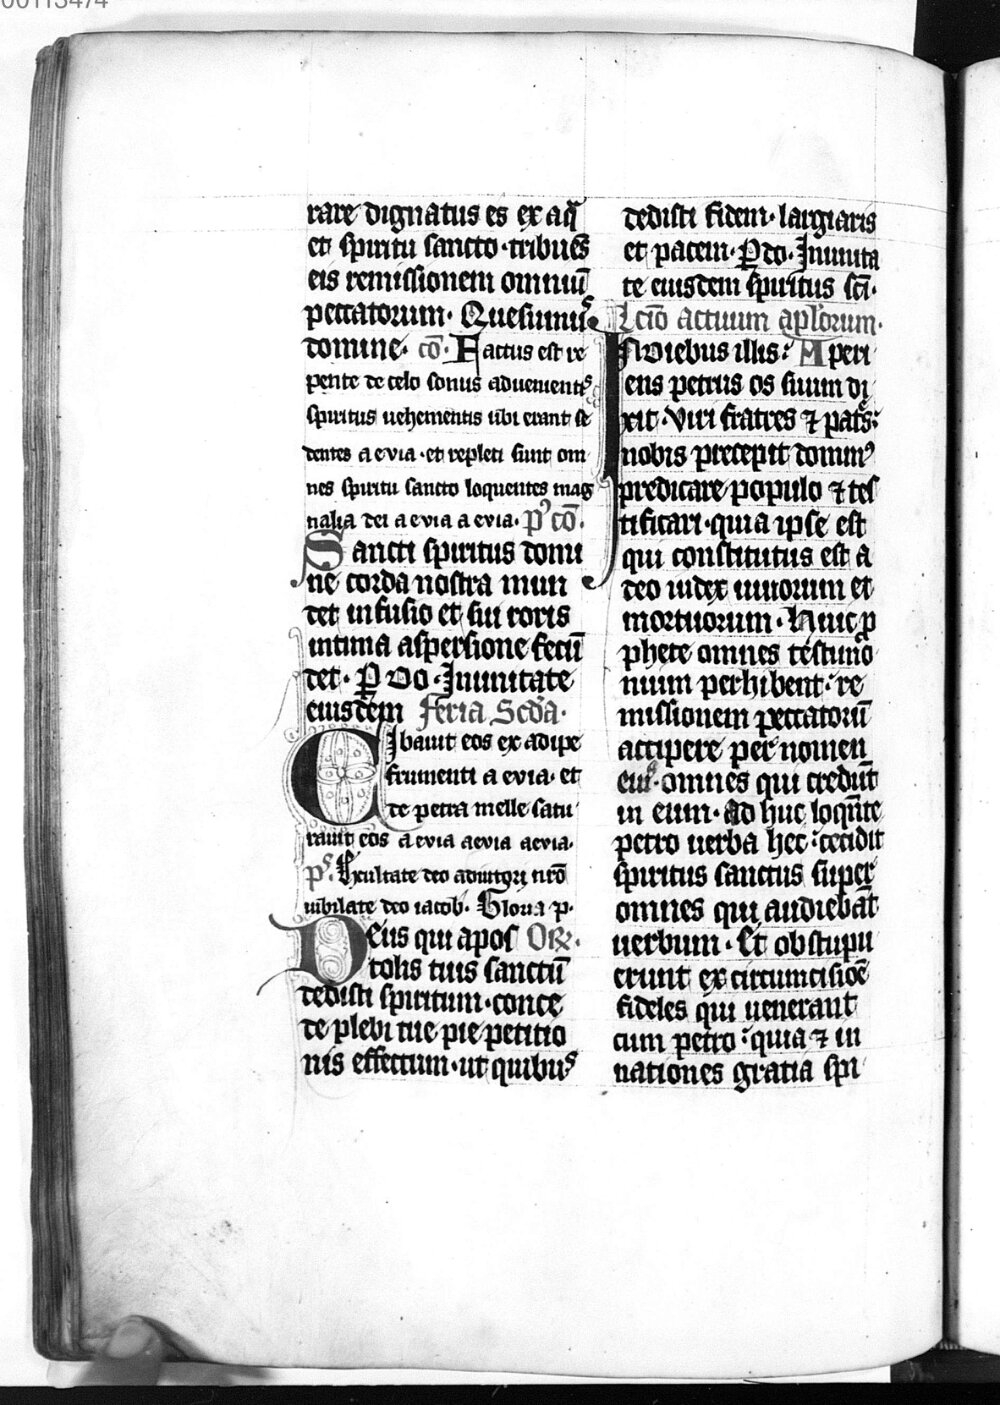 00113474
rare dignatus es ex aq̄
et spiritu sancto·tribuēs
eis remissionem omniū
peccatorum· Quesumꝰ
domine· cō· Factus est re
pente de celo sonus aduenientꝭ
spiritus uehementis ubi erant se
dentes aeuia·et repleti sunt om
nes spiritu sancto loquentes mag
nalia dei aeuia aeuia· pꝰ cō·
Sancti spiritus domi
ne corda nostra mun
det infusio et sui roris
intima aspersione fecū
det· P do·Inunitate
eiusdem feria Scd̄a·
Cibauit eos ex adipe
frumenti aeuia· et
de petra melle satu
rauit eos aeuia aeuia aeuia·
pˢ· Exultate deo adiutori nr̄o
iubilate deo iacob· Gloria p·
Deus qui apos Or̄·
tolis tuis sanctū
dedisti spiritum·conce
de plebi tue pie petitio
nis effectum·ut quibuˢ
dedisti fidem·largiaris
et pacem·P do·Inunita
te eiusdem spiritus sc̄i·
Lc̄io actuum ap̄lorum·
In diebus illis: Aperi
ens petrus os suum di
xit·Viri fratres ⁊ patꝭs:
nobis precepit dominꝰ
predicare populo ⁊ tes
tificari·quia ipse est
qui constitutus est a
deo iudex uiuorum et
mortuorum· Huic p
phete omnes testimo
nium perhibent: re
missionem peccatorū
accipere per nomen
eiuˢ·omnes qui credūt
in eum· Ad huc loqn̄te
petro uerba hec: cecidit
spiritus sanctus super
omnes qui audiebāt
uerbum· Et obstupu
erunt ex circumcisiōe
fideles qui uenerant
cum petro: quia ⁊ in
nationes gratia spi